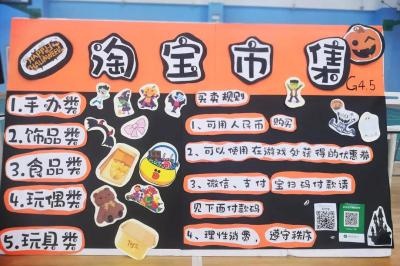 HAPPY HALLOWEEN
淘宝市集
G4.5
1.手办类
2.饰品类
3.食品类
4.玩偶类
5.玩具类
买卖规则
1、可用人民币购买
2、可以使用在游戏处获得的优惠券
3、微信、支付宝扫码付款请
见下面付款码
4、理性消费，遵守秩序